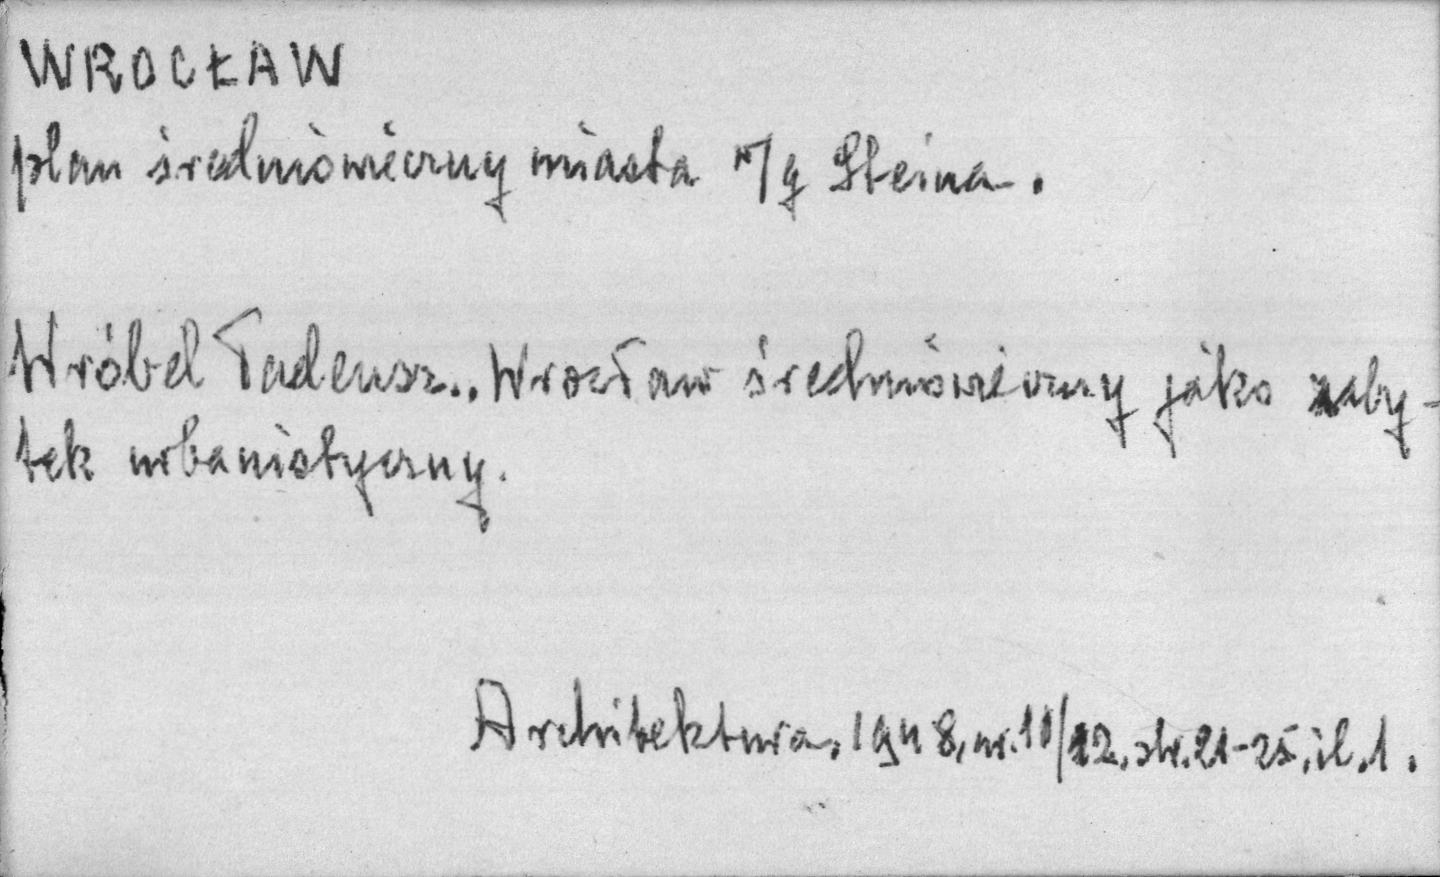 WROCŁAW
plan średniowieczny miasta w/g Steina.
Wróbel Tadeusz.. Wrocław średniowieczny jako zaby-
tek urbanistyczny.
Architektura, 1948, nr. 11/12, str. 21-25, il. 1.